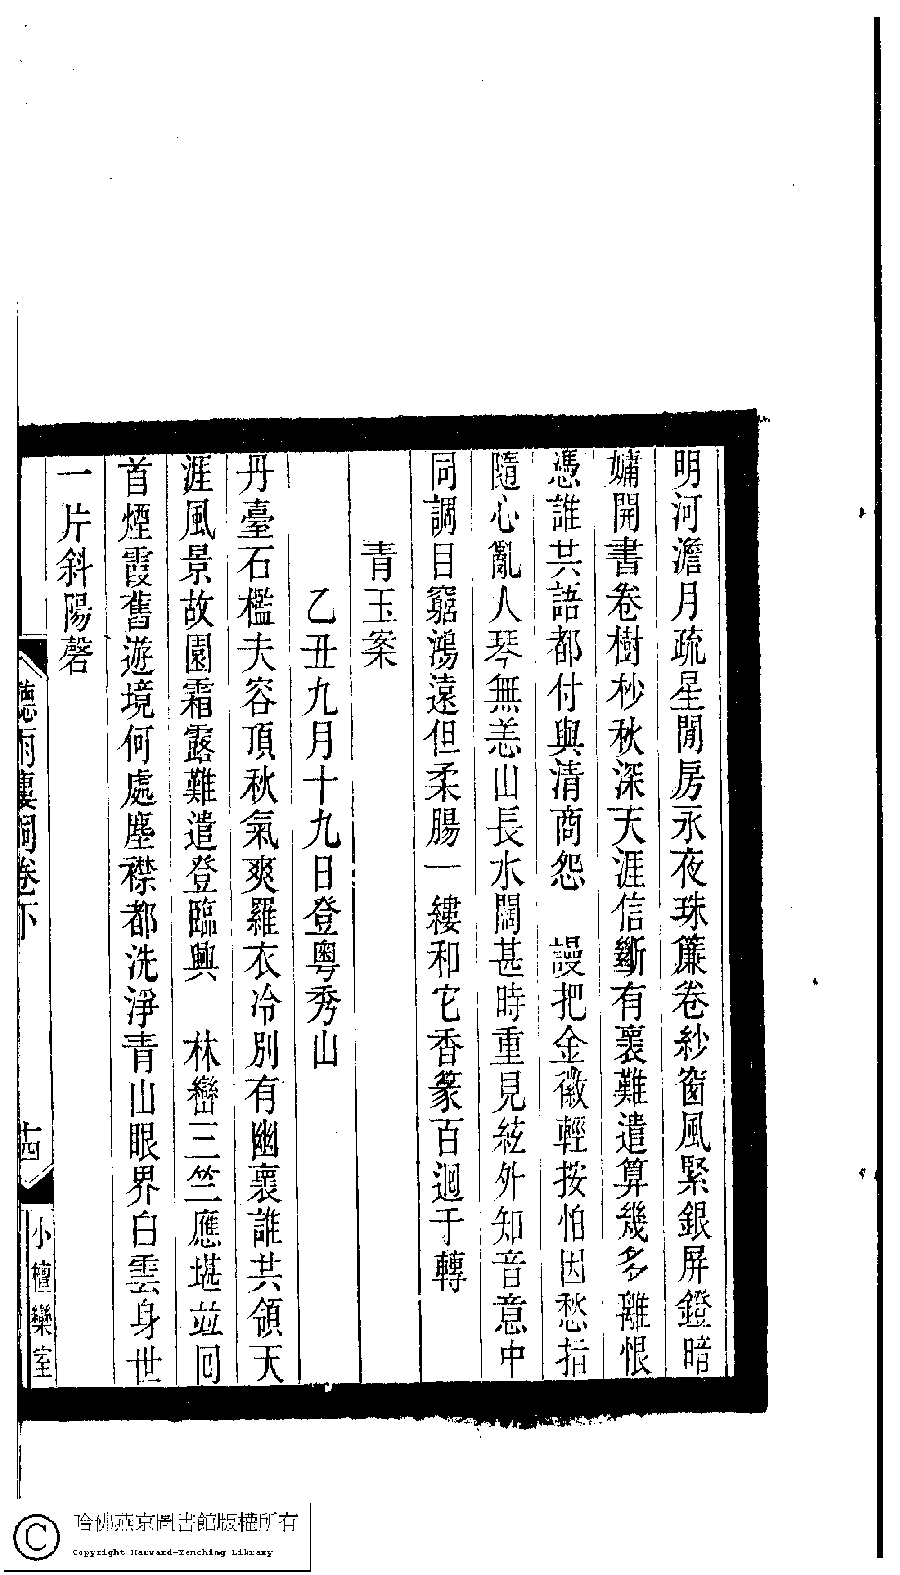 明河澹月疏星閒房永夜珠簾卷紗窗風緊銀屏鐙暗
嬾開書卷樹杪秋深天涯信斷有裏難遣算幾多離恨
憑誰共語都付與清商怨　謾把金徽輕按怕因愁指
隨心亂人琴無恙山長水闊甚時重見絃外知音意中
同調目窮鴻遠但柔腸一縷和它香篆百迴千轉
青玉案
乙丑九月十九日登粵秀山
丹臺石檻夫容頂秋氣爽羅衣冷別有幽襄誰共領天
涯風景故園霜露難遣登臨興　林巒三竺應堪並回
首煙霞舊遊境何處塵襟都洗淨青山眼界白雲身世
一片斜陽磬
聽雨樓詞卷下
十四
小檀欒室
哈佛燕京圖書館版權所有
Copyright Harvard-Yenching Library